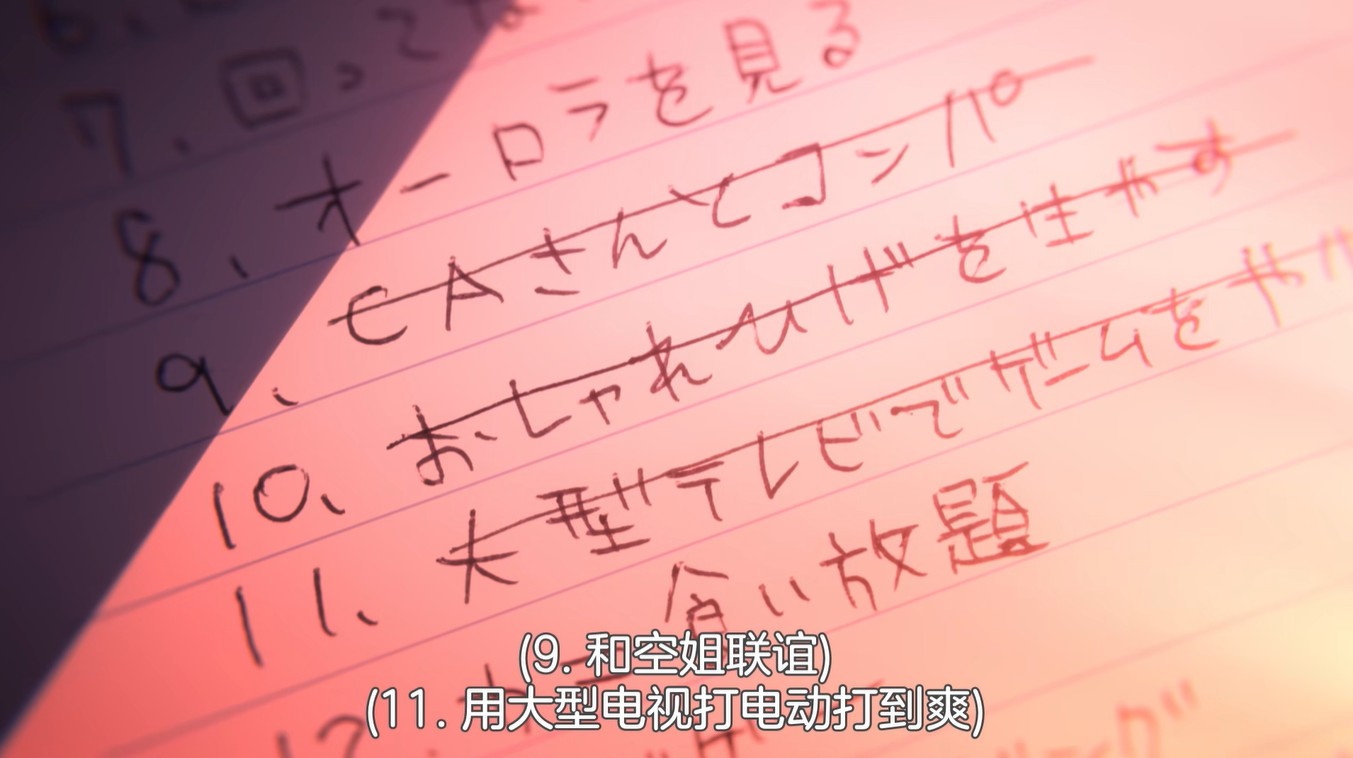 7、回って
8、オーロラを見る
9、CAさんとコンパ
10、おしゃれひげを生やす
11、大型テレビでゲームをや
12、カニ食い放題
(9. 和空姐联谊)
(11. 用大型电视打电动打到爽)